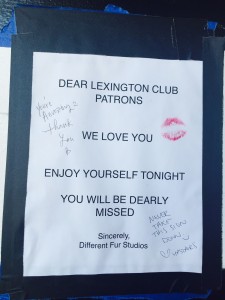 DEAR LEXINGTON CLUB
PATRONS
WE LOVE YOU
ENJOY YOURSELF TONIGHT
YOU WILL BE DEARLY
MISSED
Sincerely,
Different Fur Studios
You're
Amazing
thank
You
NEVER
TAKE
THIS SIGN
DOWN